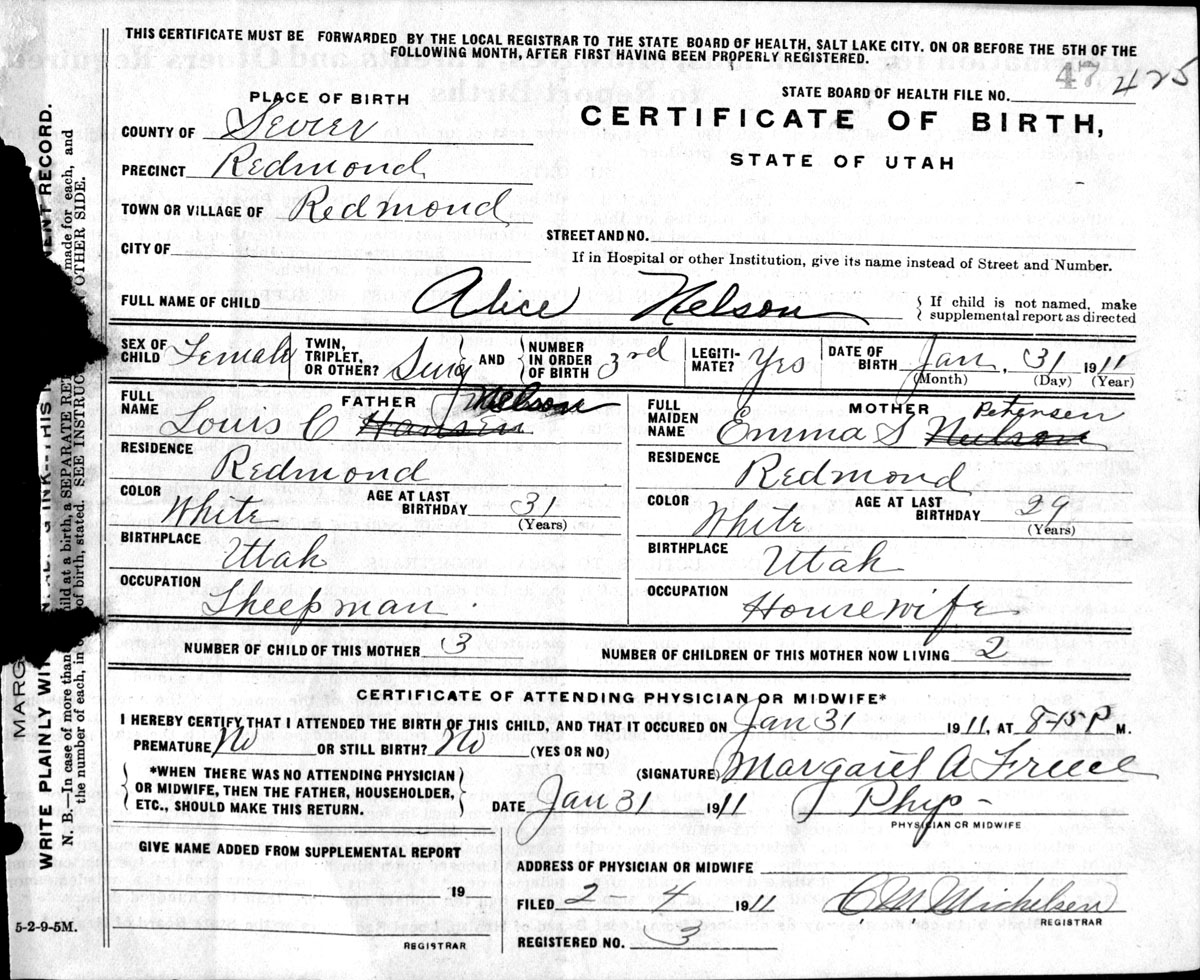 THIS CERTIFICATE MUST BE FORWARDED BY THE LOCAL REGISTRAR TO THE STATE BOARD OF HEALTH, SALT LAKE CITY. ON OR BEFORE THE 5TH OF THE
FOLLOWING MONTH, AFTER FIRST HAVING BEEN PROPERLY REGISTERED.
47 425
STATE BOARD OF HEALTH FILE NO.
PLACE OF BIRTH
CERTIFICATE OF BIRTH,
STATE OF UTAH
COUNTY OF Sevier
PRECINCT Redmond
TOWN OR VILLAGE OF Redmond
STREET AND NO.
CITY OF
If in Hospital or other Institution, give its name instead of Street and Number.
FULL NAME OF CHILD Alice Nelson
If child is not named, make
supplemental report as directed
SEX OF CHILD Female
TWIN, TRIPLET, OR OTHER? Sing AND NUMBER IN ORDER OF BIRTH 3rd
LEGITI-MATE? Yes
DATE OF BIRTH Jan. 31 1911
(Month) (Day) (Year)
FULL NAME FATHER Nelson
Louis C Hansen
RESIDENCE Redmond
COLOR White AGE AT LAST BIRTHDAY 31
(Years)
BIRTHPLACE Utah
OCCUPATION Sheepman
FULL MAIDEN NAME MOTHER Petersen
Emma S Neilson
RESIDENCE Redmond
COLOR White AGE AT LAST BIRTHDAY 29
(Years)
BIRTHPLACE Utah
OCCUPATION Housewife
NUMBER OF CHILD OF THIS MOTHER 3
NUMBER OF CHILDREN OF THIS MOTHER NOW LIVING 2
CERTIFICATE OF ATTENDING PHYSICIAN OR MIDWIFE*
I HEREBY CERTIFY THAT I ATTENDED THE BIRTH OF THIS CHILD, AND THAT IT OCCURED ON Jan 31 1911, AT 8-15 P M.
PREMATURE No OR STILL BIRTH? No (YES OR NO)
*WHEN THERE WAS NO ATTENDING PHYSICIAN
OR MIDWIFE, THEN THE FATHER, HOUSEHOLDER,
ETC., SHOULD MAKE THIS RETURN.
(SIGNATURE) Margaret A Freece
DATE Jan 31 1911 Phys-
PHYSICIAN OR MIDWIFE
GIVE NAME ADDED FROM SUPPLEMENTAL REPORT
19
REGISTRAR
ADDRESS OF PHYSICIAN OR MIDWIFE
FILED 2 4 1911 C M Michelsen
REGISTRAR
REGISTERED NO. 3
5-2-9-5M.
MARG
WRITE PLAINLY WIT
G INK—THIS IS
NENT RECORD.
N. B.—In case of more than
child at a birth, a SEPARATE RET
made for each, and
the number of each, in o
of birth, stated. SEE INSTRUC
OTHER SIDE.